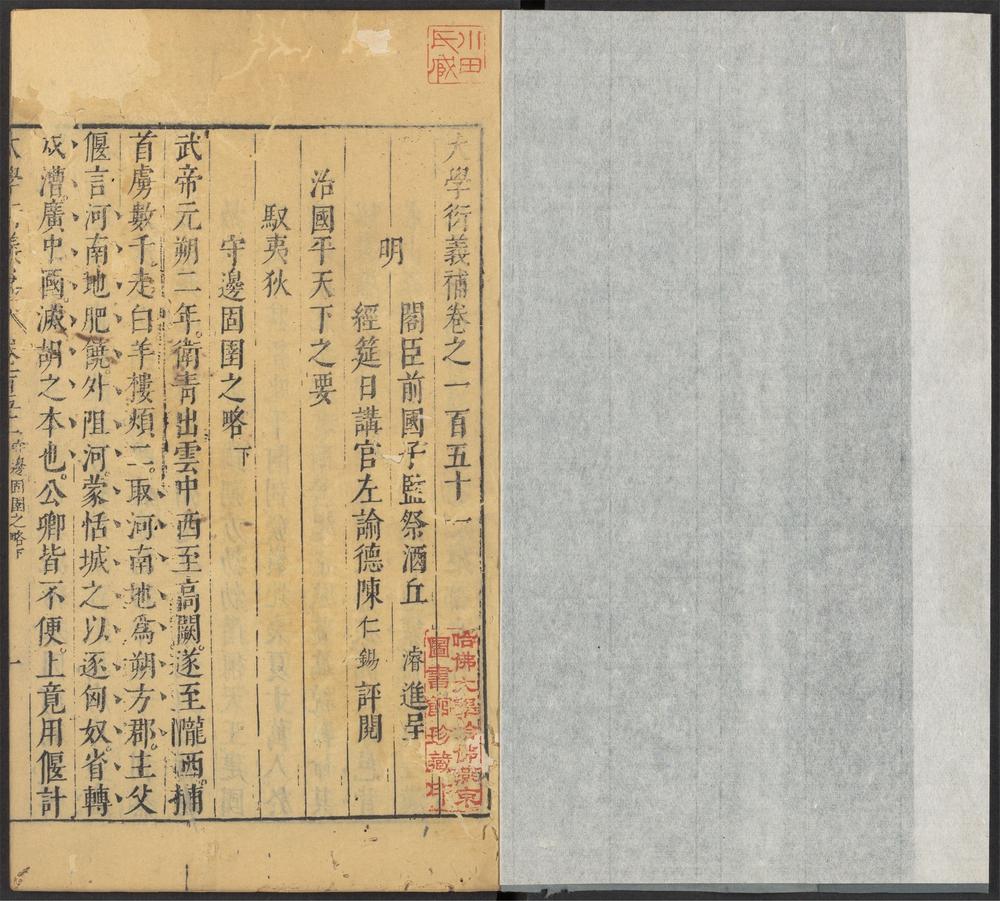 大學衍義補卷之一百五十一
明
閣臣前國子監祭酒丘 濬 進呈
經筵日講官左諭德陳 仁錫 評閱
治國平天下之要
馭夷狄
守邊固圉之略 下
武帝元朔二年。衛青出雲中西至高闕。遂至隴西。捕
首虜數千。走白羊樓煩二。取河南地爲朔方郡。主父
偃言河南地肥饒。外阻河。蒙恬城之以逐匈奴。省轉
戍漕。廣中國。滅胡之本也。公卿皆不便。上竟用偃計
守邊固圉之略下 一
川田氏藏
哈佛大學哈佛燕京圖書館珍藏印